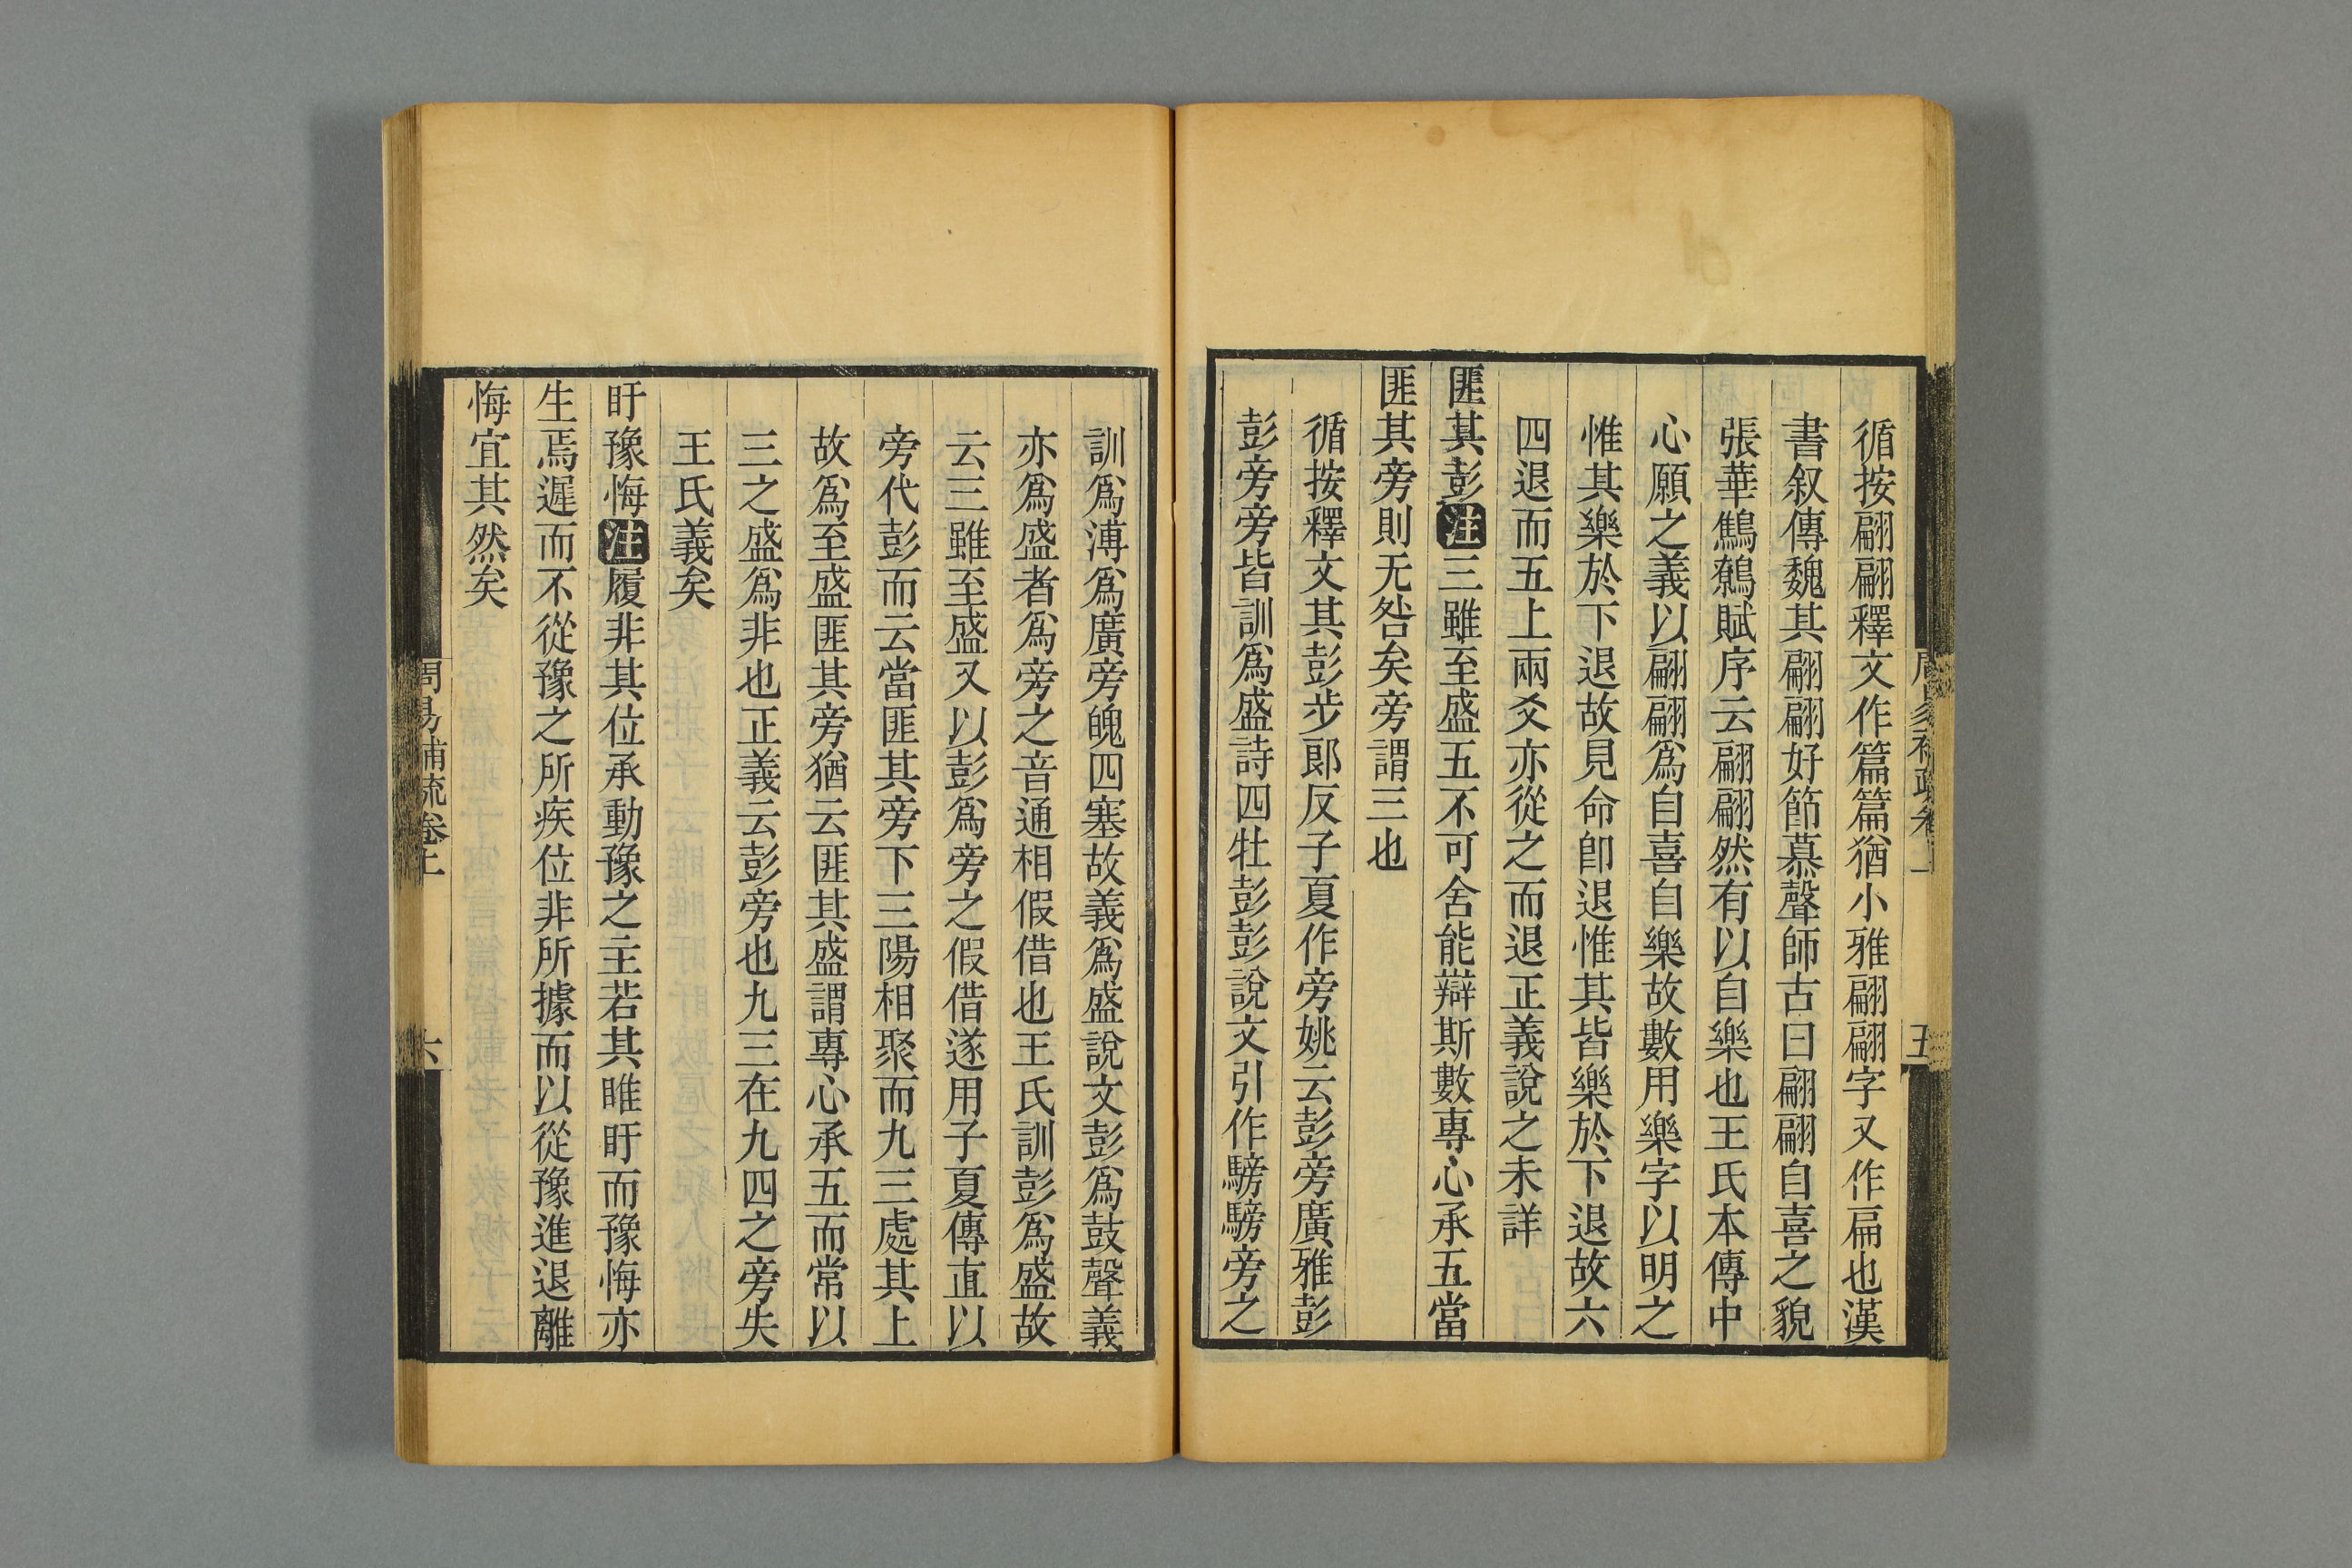 循按翩翩釋文作篇篇猶小雅翩翩字又作扁也漢
書叙傳魏其翩翩好節慕聲師古曰翩翩自喜之貌
張華鷦鷯賦序云翩翩然有以自樂也王氏本傳中
心願之義以翩翩爲自喜自樂故數用樂字以明之
惟其樂於下退故見命卽退惟其皆樂於下退故六
四退而五上兩爻亦從之而退正義說之未詳
匪其彭注三雖至盛五不可舍能辯斯數專心承五當
匪其旁則无咎矣旁謂三也
循按釋文其彭步郎反子夏作旁姚云彭旁廣雅彭
彭旁旁皆訓爲盛詩四牡彭彭說文引作騯騯旁之
訓爲溥爲廣旁魄四塞故義爲盛說文彭爲鼓聲義
亦爲盛者爲旁之音通相假借也王氏訓彭爲盛故
云三雖至盛又以彭爲旁之假借遂用子夏傳直以
旁代彭而云當匪其旁下三陽相聚而九三處其上
故爲至盛匪其旁猶云匪其盛謂專心承五而常以
三之盛爲非也正義云彭旁也九三在九四之旁失
王氏義矣
盱豫悔注履非其位承動豫之主若其睢盱而豫悔亦
生焉遲而不從豫之所疾位非所據而以從豫進退離
悔宜其然矣
周易補疏卷上
六